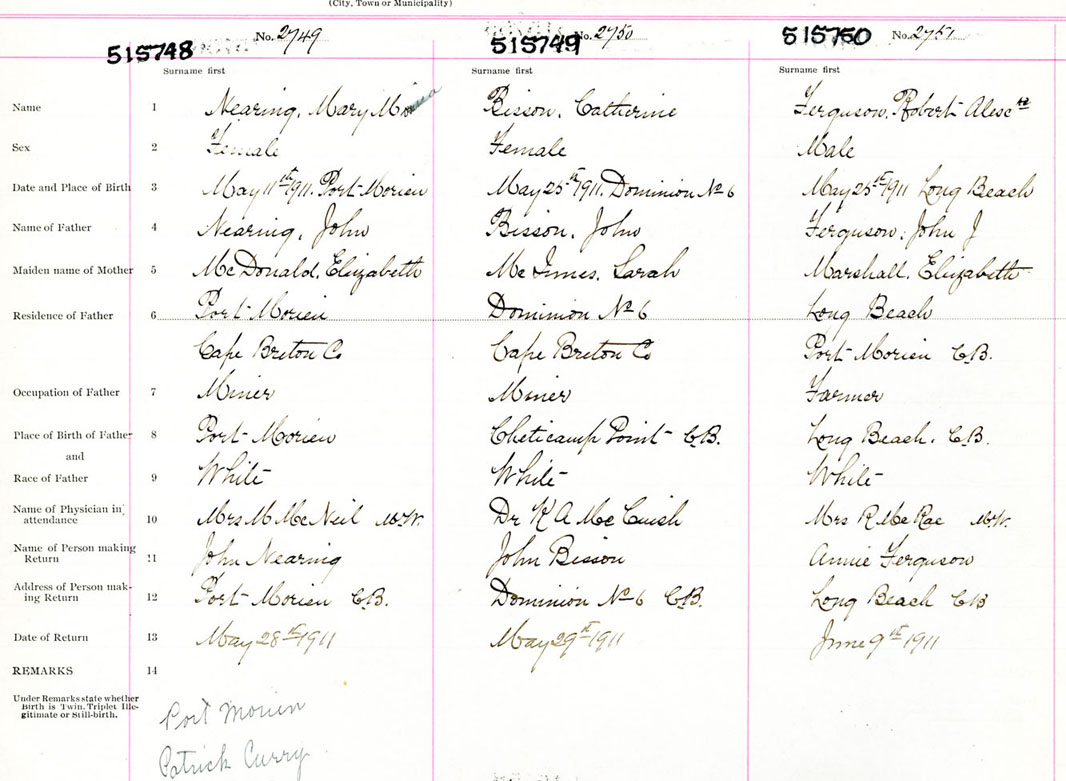 (City, Town or Municipality)
515748 No. 2749 515749 No. 2750 515750 No. 2751
Surname first Surname first Surname first
Name 1 Nearing, Mary Bisson, Catherine Ferguson, Robert Alexr
Sex 2 Female Female Male
Date and Place of Birth 3 May 11th 1911. Port-Morien May 25th 1911, Dominion No 6 May 25th 1911 Long Beach
Name of Father 4 Nearing, John Bisson, John Ferguson, John J
Maiden name of Mother 5 McDonald, Elizabeth McInnes, Sarah Marshall, Elizabeth
Residence of Father 6 Port-Morien Dominion No 6 Long Beach
Cape Breton Co Cape Breton Co Port-Morien C.B.
Occupation of Father 7 Miner Miner Farmer
Place of Birth of Father 8 Port-Morien Cheticamp Point C.B. Long Beach, C.B.
and
Race of Father 9 White White White
Name of Physician in attendance 10 Mrs M McNeil M.W. Dr K A McCuish Mrs R McRae M.W.
Name of Person making Return 11 John Nearing John Bisson Annie Ferguson
Address of Person making Return 12 Port-Morien C.B. Dominion No 6 C.B. Long Beach CB
Date of Return 13 May 28th 1911 May 29th 1911 June 9th 1911
REMARKS 14
Under Remarks state whether
Birth is Twin, Triplet Ille-
gitimate or Still-birth.
Port Morien
Patrick Curry